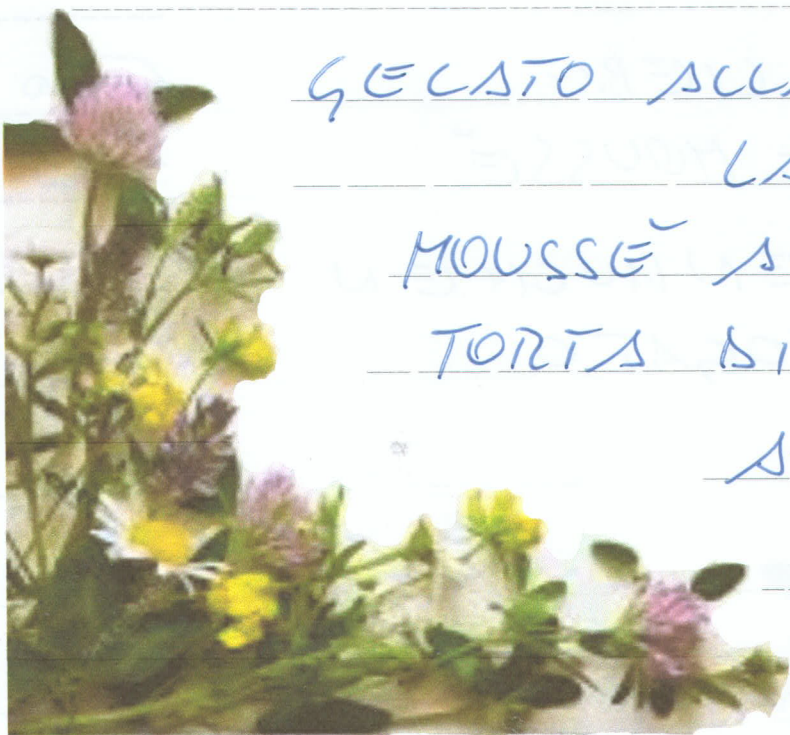 GELATO ALLA
LA
MOUSSÈ A
TORTA DI
A